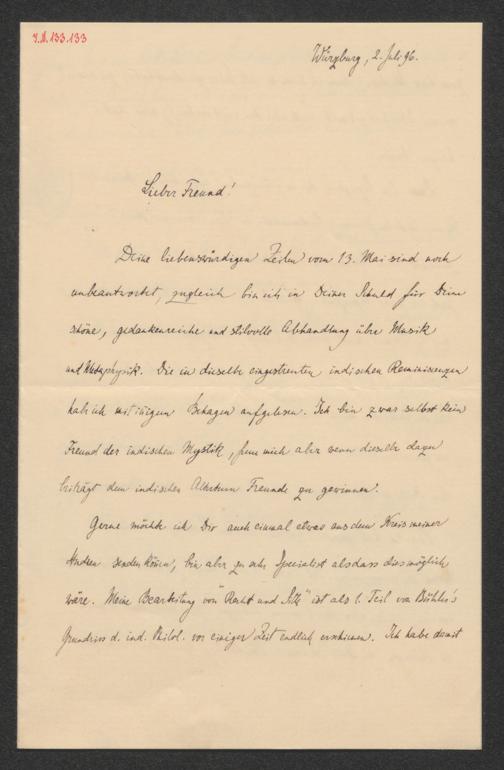 I.N. 133.133
Würzburg, 2. Juli 96.
Lieber Freund!
Deine liebenswürdigen Zeilen vom 13. Mai sind noch
unbeantwortet, zugleich bin ich in Deiner Schuld für Deine
schöne, gedankenreiche und stilvolle Abhandlung über Musik
und Metaphysik. Die in dieselbe eingestreuten indischen Reminiscenzen
hab ich mit Behagen aufgelesen. Ich bin zwar selbst kein
Freund der indischen Mystik, freue mich aber wenn dieselbe dazu
beiträgt dem indischen Altertum Freunde zu gewinnen.
Gerne möchte ich Dir auch einmal etwas aus dem Kreis meiner
Studien senden können, bin aber zu sehr Specialist als dass dies möglich
wäre. Meine Bearbeitung von "Recht und Sitte" ist als Teil von Bühler's
Grundriss d. ind. Philol. vor einiger Zeit endlich erschienen. Ich habe damit